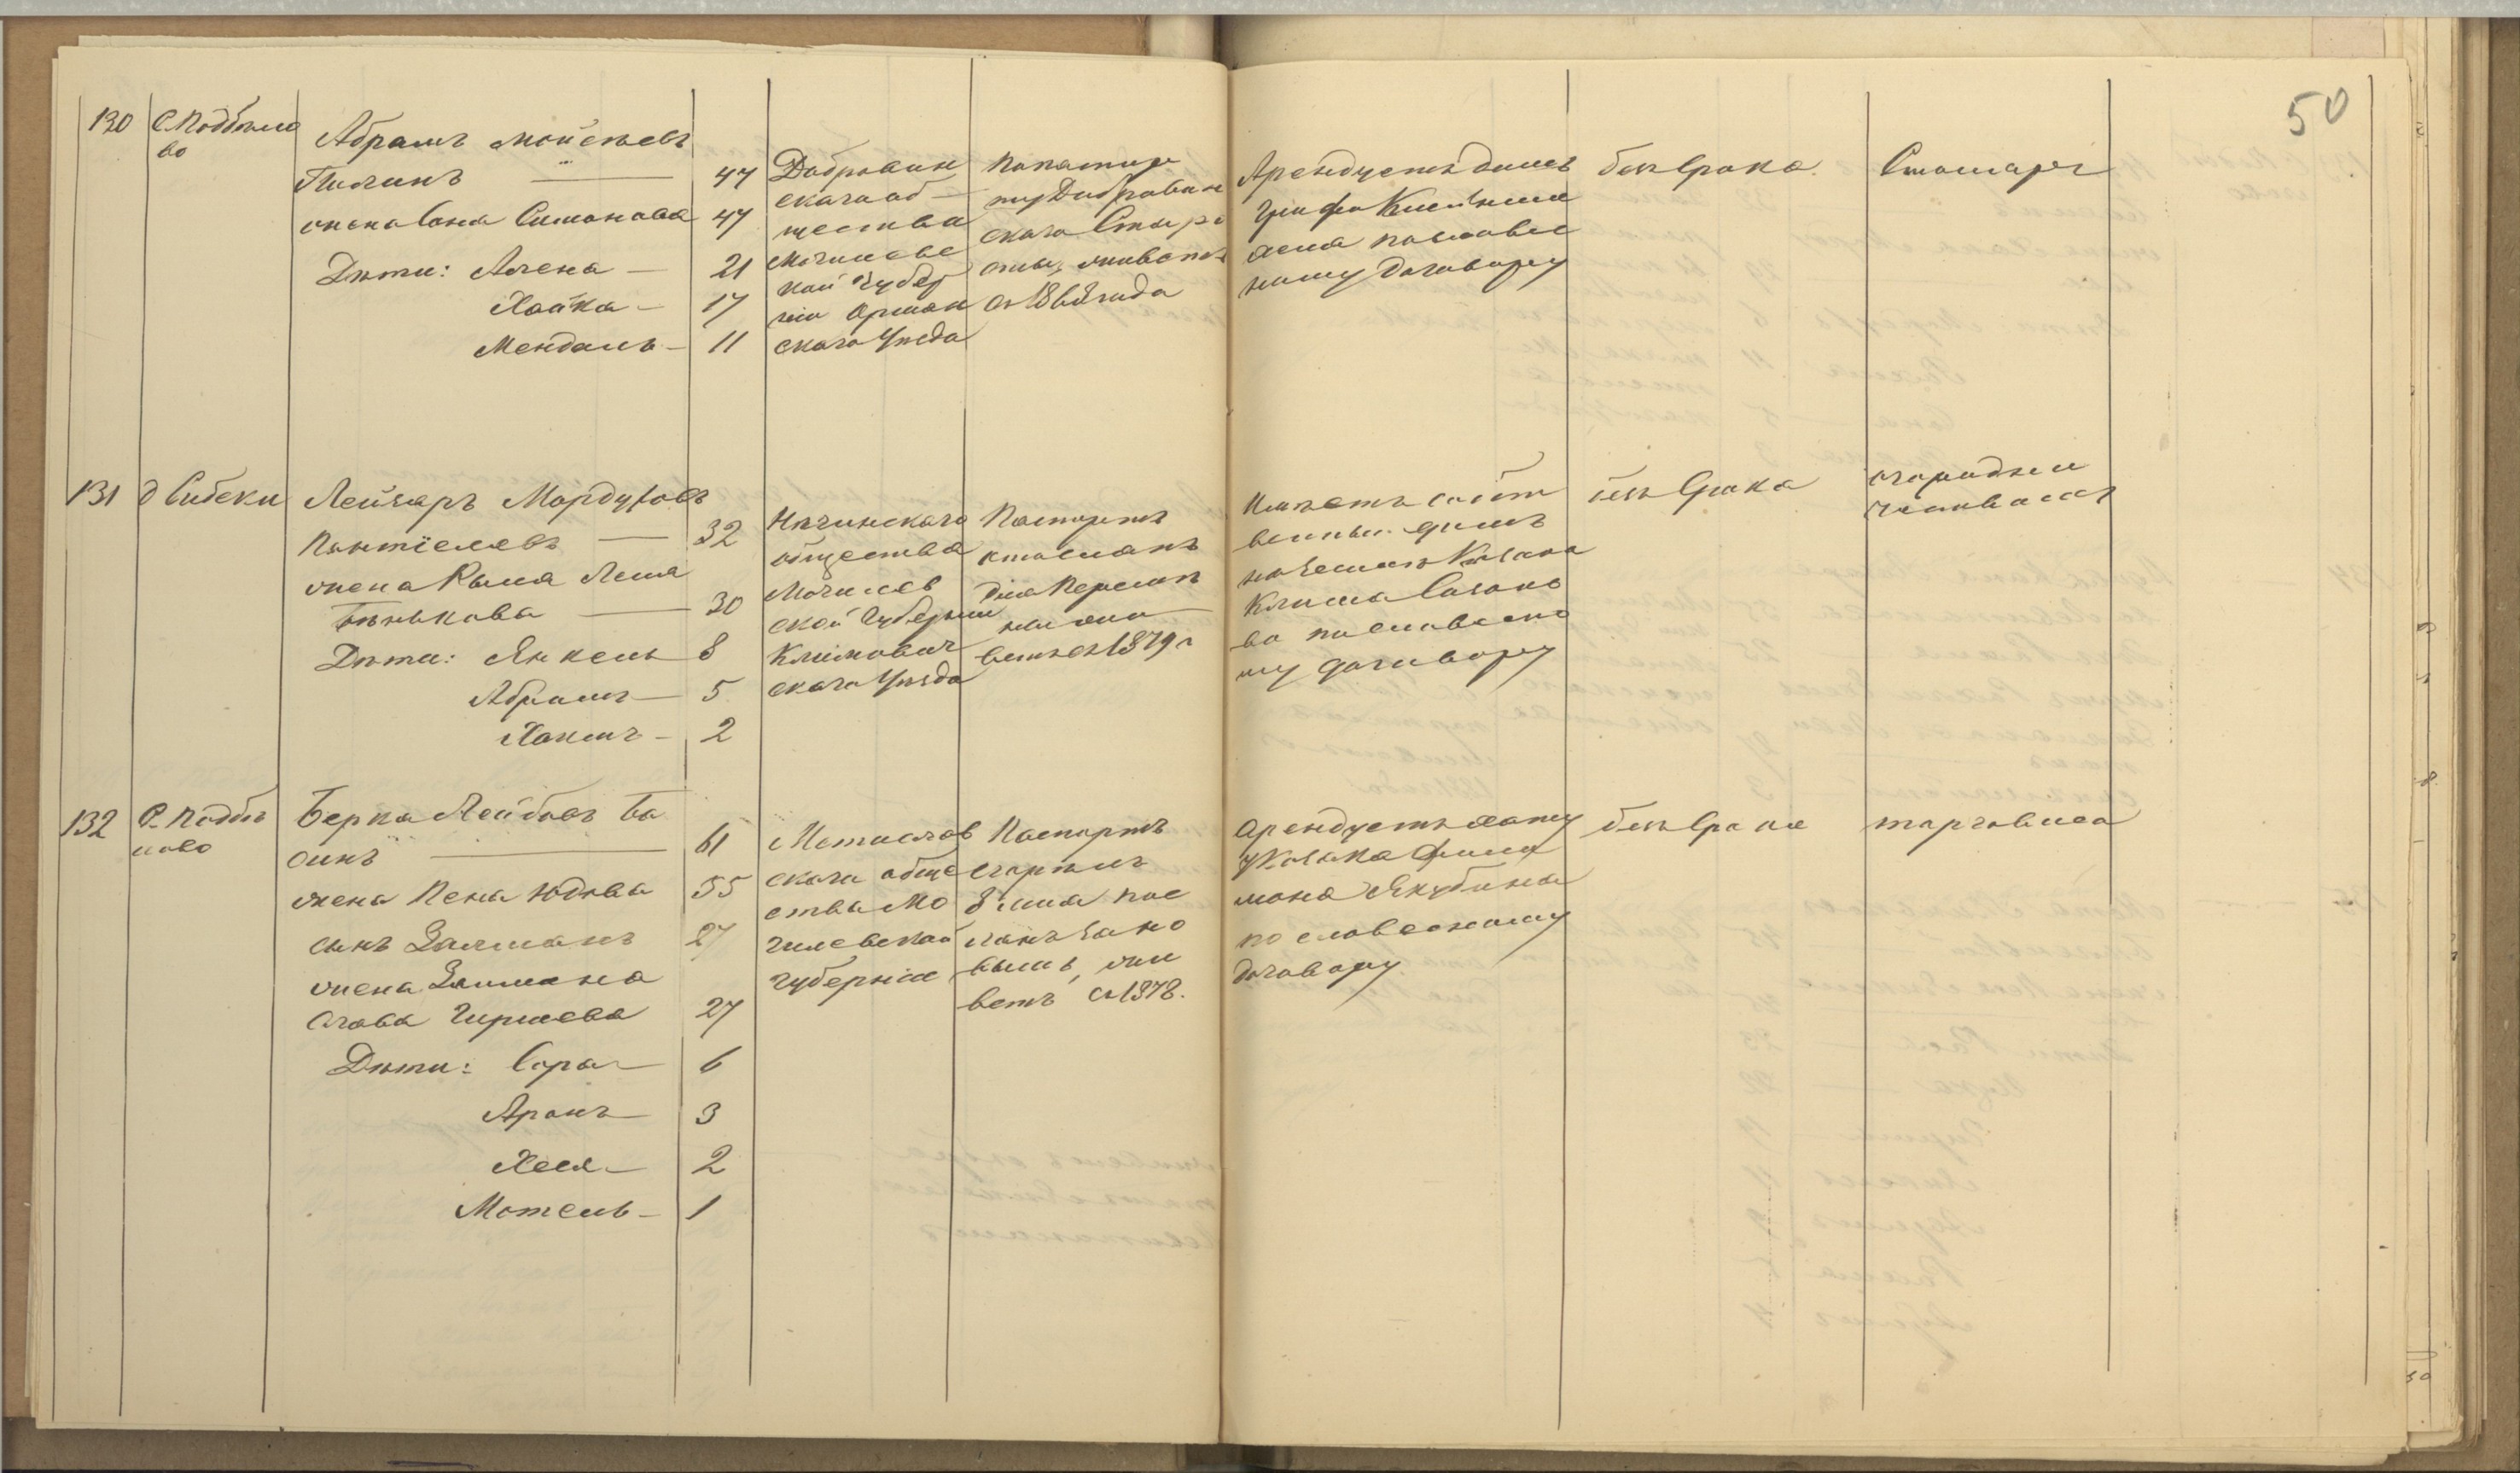 50
130
С. Поддѣло
во
Абрамъ Мойсѣевъ
Пилинъ — 47
жена Сона Симонова 47
Дѣти: Алена — 21
Хайка — 17
Мендаль — 11
Добровин
скаго об —
щества
Могилевс
кой Губер
ніи Оршан
скаго Уѣзда
По
ту Дубровин
скаго Старо
сты, живетъ
съ 1868 года
Арендуетъ домъ
графа
по словес
ному договору
безъ срока
Столяръ
131
д Сибеки
Лейзаръ Мордуховъ
Пантіелевъ — 32
жена Рыля Леия
Бѣнькова — 30
Дѣти: Янкель 8
Абрамъ — 5
Хаимъ — 2
Нѣчинскаго
общества
Могилев
ской Губерніи
Климович
скаго Уѣзда
Паспортъ
жи
ветъ съ 1879 г
Имѣетъ собст
венный домъ
на землѣ Козака
Клима Сазоно
ва по словесно
му договору
безъ срока
132
С. Поддѣ
лово
Берка Лейбовъ Ба
синъ — 61
жена Пеша Юдова 55
сынъ Залманъ 27
жена Залмана
Слава Гиршева 27
Дѣти: Сора — 6
Аронъ — 3
Хеся — 2
Мотель — 1
Мстислав
скаго обще
ства Мо
гилевской
губерніи
Паспортъ
жи
ветъ съ 1878.
Арендуетъ хату
у Козака Фили
мона Якубина
по словесному
договору
безъ срока
торговлея